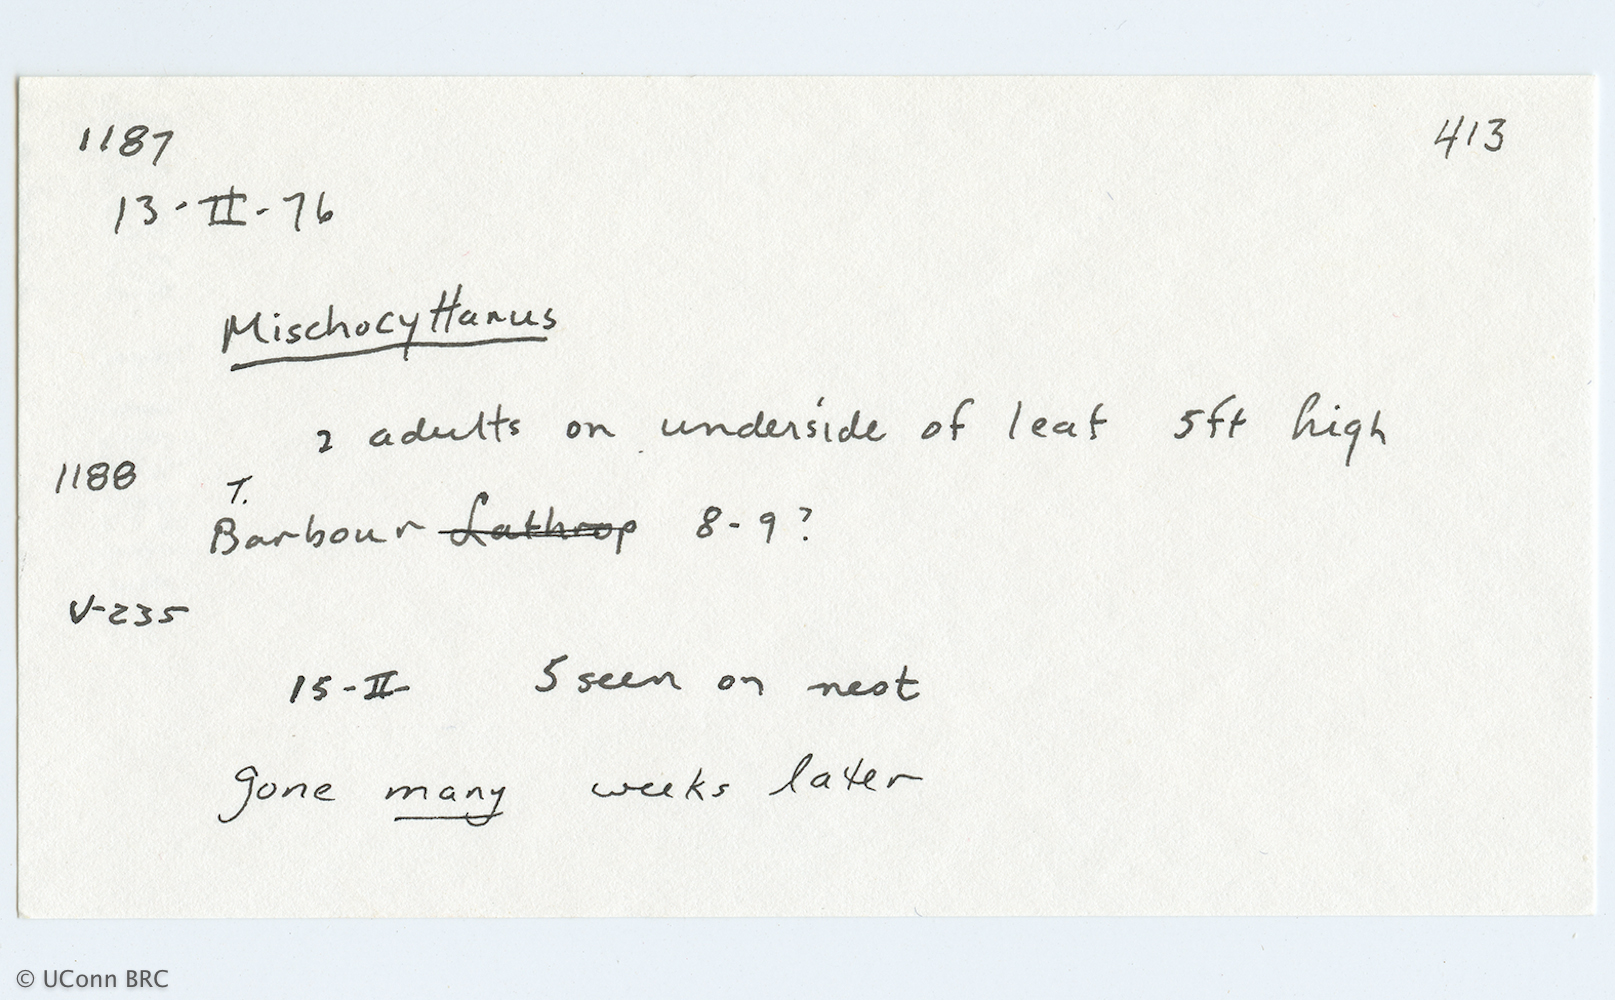 1187 413
13-II-76
Mischocyttarus
2 adults on underside of leaf 5ft high
1188
T.
Barbour Lathrop 8-9?
V-235
15-II- 5 seen on nest
gone many weeks later
© UConn BRC